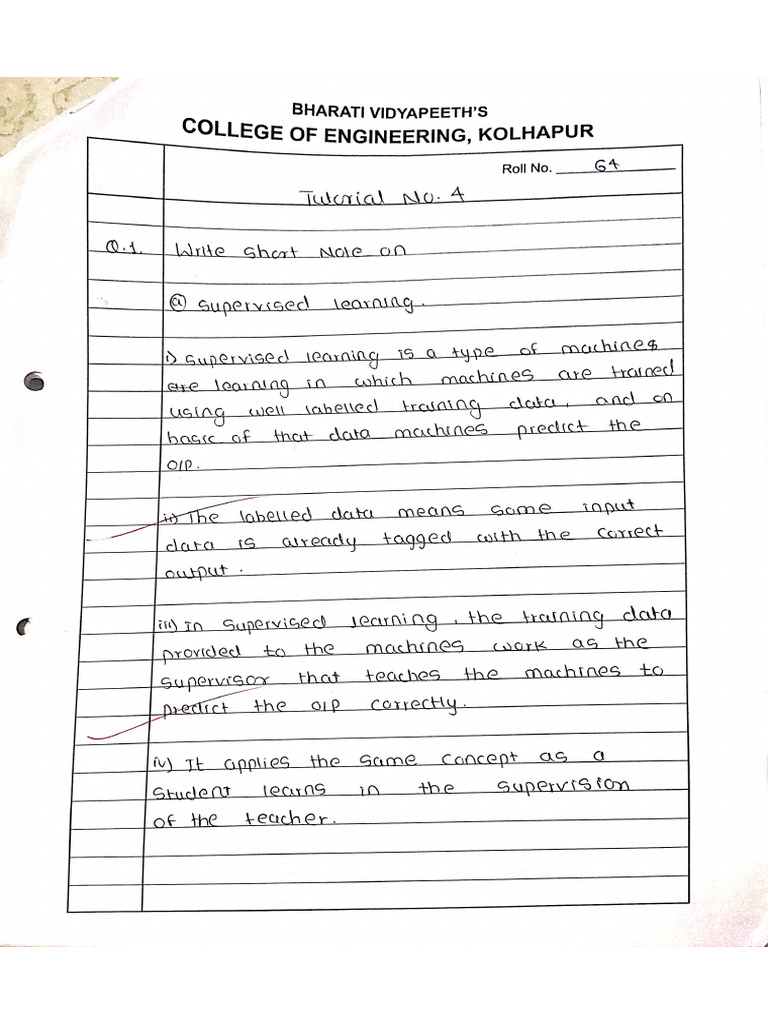 BHARATI VIDYAPEETH'S
COLLEGE OF ENGINEERING, KOLHAPUR
Roll No. 64
Tutorial No. 4
Q.1. Write Short Note on
a) Supervised learning.
i) Supervised learning is a type of machines
are learning in which machines are trained
using well labelled training data, and on
basic of that data machines predict the
O/P.
ii) The labelled data means some input
data is already tagged with the correct
output.
iii) In Supervised learning, the training data
provided to the machines work as the
supervisor that teaches the machines to
predict the O/P correctly.
iv) It applies the same concept as a
Student learns in the supervision
of the teacher.